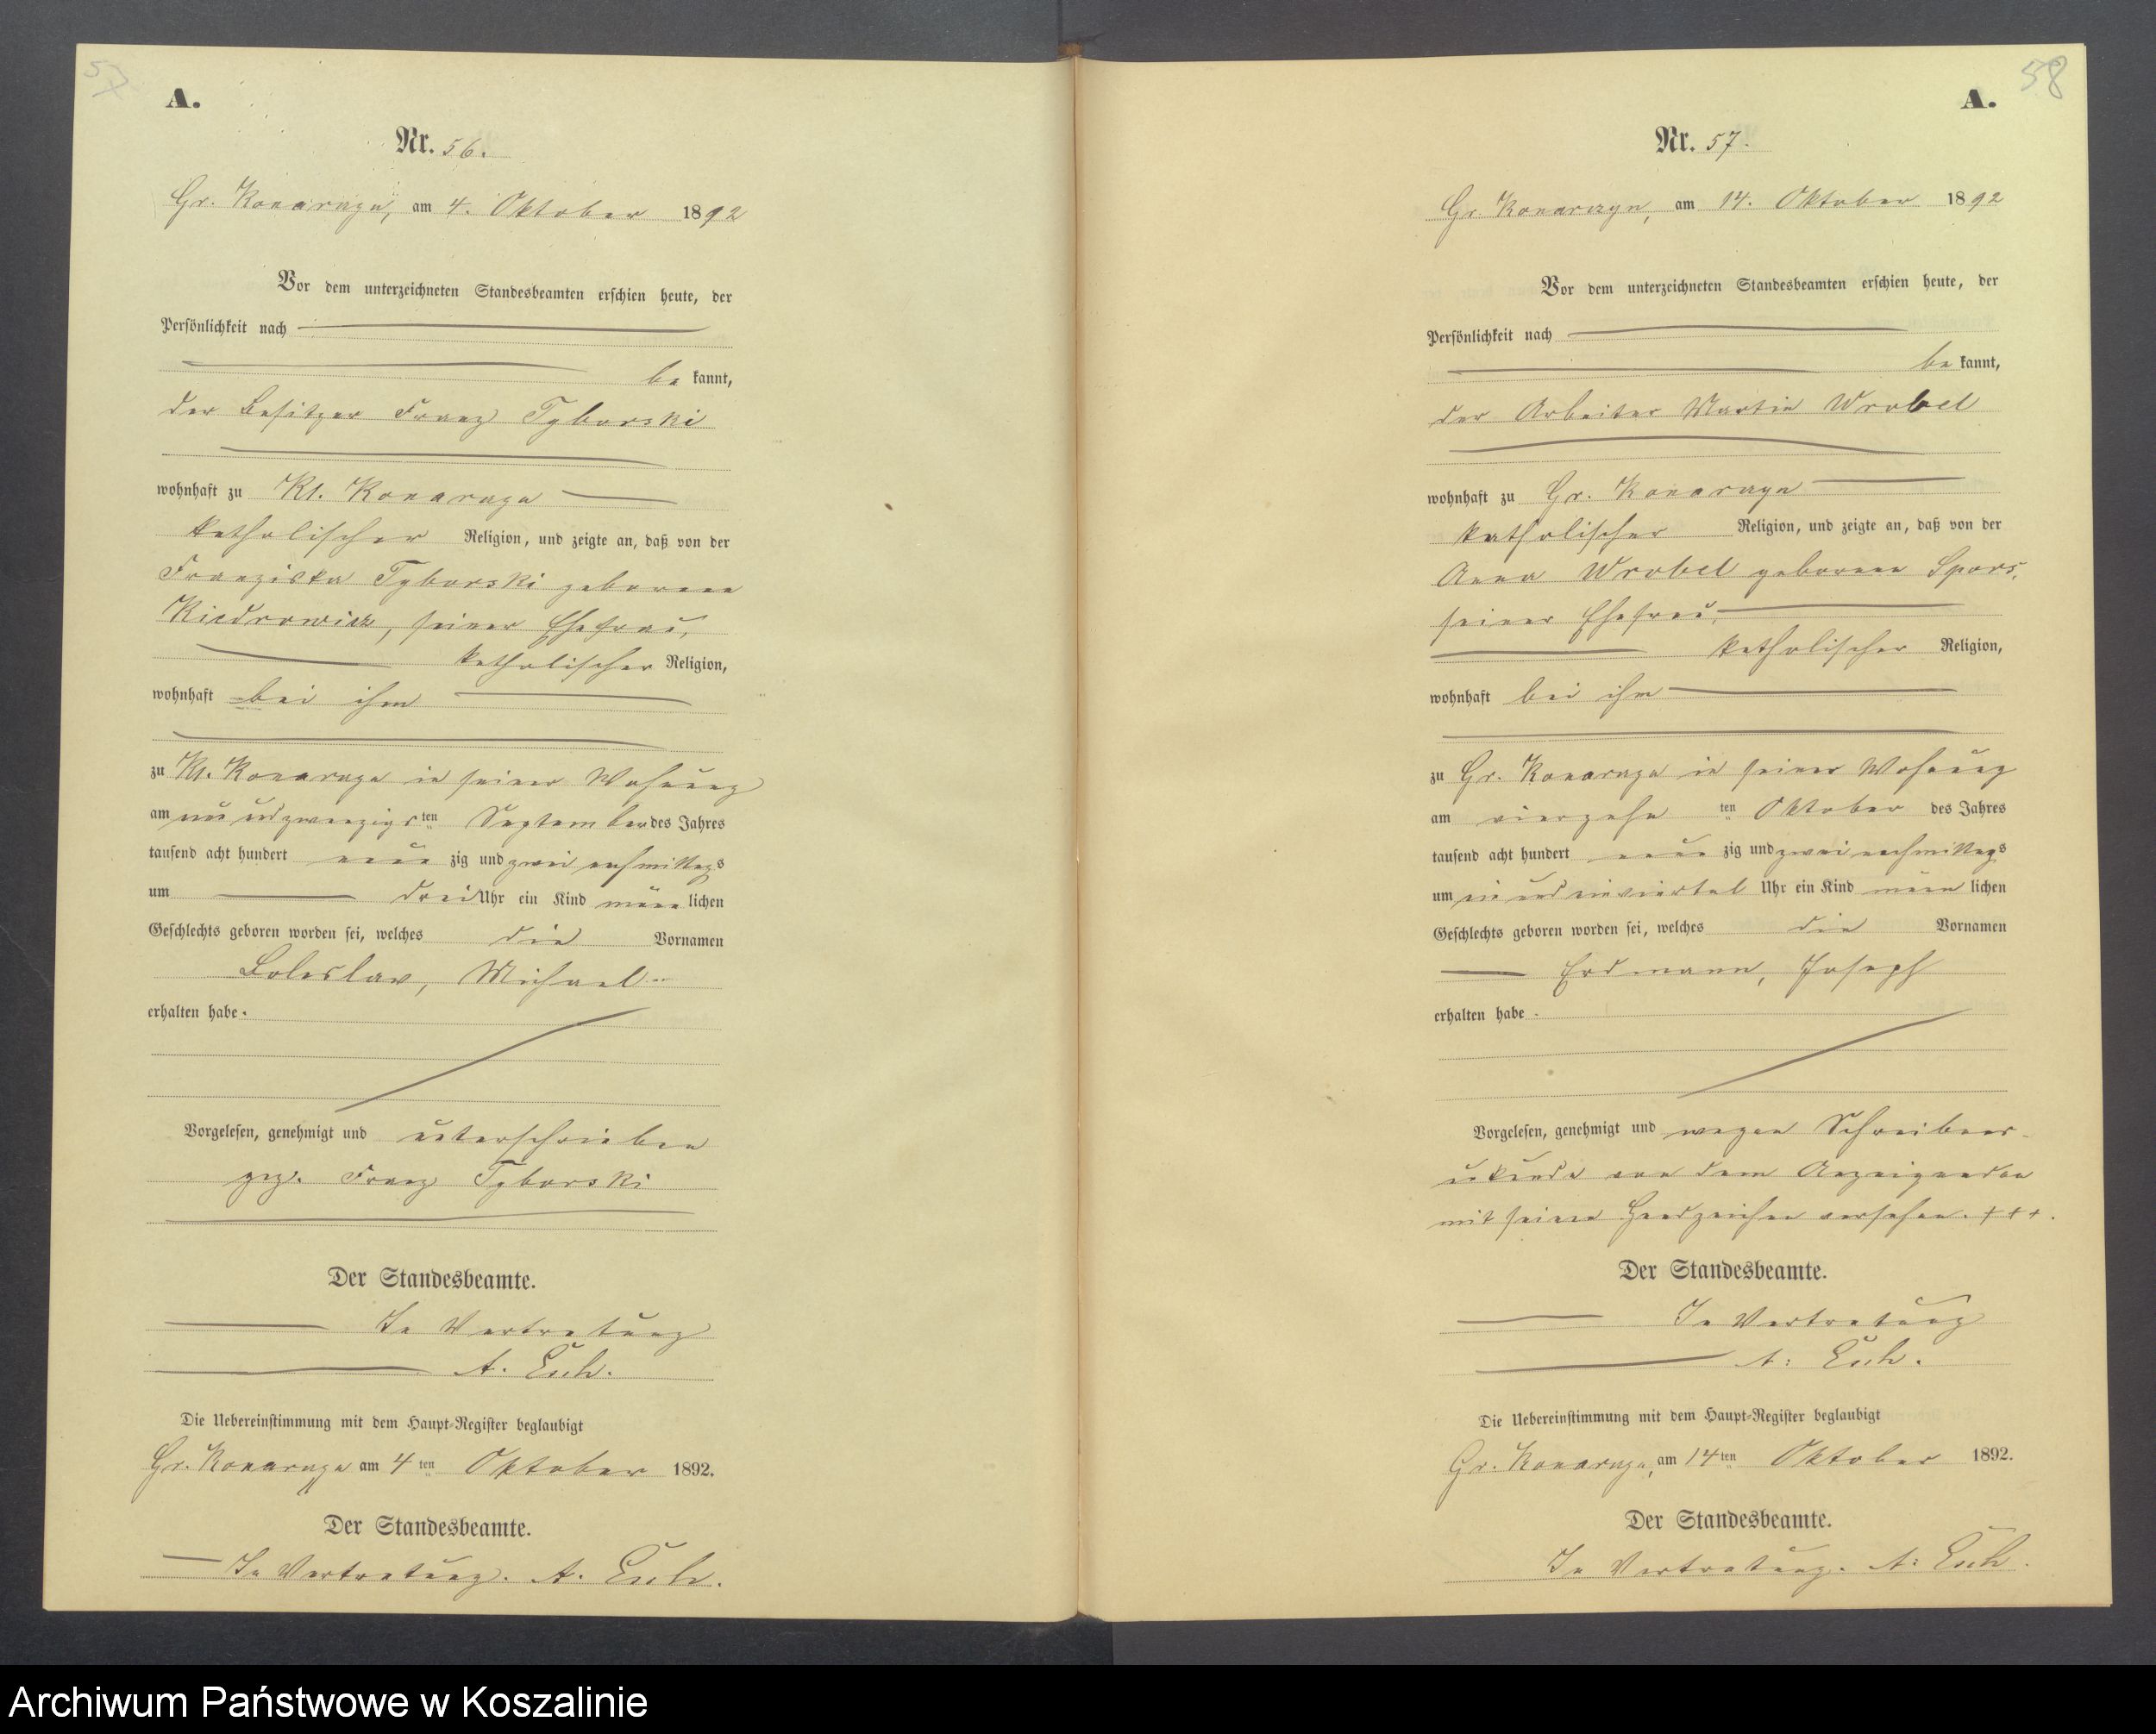 57
A.
Nr. 56.
Gr. Konarczyn, am 4. Oktober 1892
Vor dem unterzeichneten Standesbeamten erschien heute, der
Persönlichkeit nach
be kannt,
der Besitzer Franz Tyborski
wohnhaft zu Kl. Konarczyn
katholischer Religion, und zeigte an, daß von der
Franziska Tyborski geborene
Kiedrowicz, seiner Ehefrau,
katholischer Religion,
wohnhaft bei ihm
zu Kl. Konarczyn in seiner Wohnung
am ein und zwanzigsten September des Jahres
tausend acht hundert neun zig und zwei nachmittags
um drei Uhr ein Kind männ lichen
Geschlechts geboren worden sei, welches die Vornamen
Boleslav, Michael
erhalten habe.
Vorgelesen, genehmigt und unterschrieben
gez. Franz Tyborski
Der Standesbeamte.
In Vertretung
A. Euch.
Die Uebereinstimmung mit dem Haupt-Register beglaubigt
Gr. Konarczyn am 4ten Oktober 1892.
Der Standesbeamte.
In Vertretung. A.
58
A.
Nr. 57.
Gr. Konarczyn, am 14. Oktober 1892
Vor dem unterzeichneten Standesbeamten erschien heute, der
Persönlichkeit nach
be kannt,
der Arbeiter Martin Wrobel
wohnhaft zu Gr. Konarczyn
katholischer Religion, und zeigte an, daß von der
Anna Wrobel geborene Spors,
seiner Ehefrau,
katholischer Religion,
wohnhaft bei ihm
zu Gr. Konarczyn in seiner Wohnung
am vierzehn ten Oktober des Jahres
tausend acht hundert neun zig und zwei nachmittags
um ein und ein viertel Uhr ein Kind männ lichen
Geschlechts geboren worden sei, welches die Vornamen
Erdmann, Joseph
erhalten habe.
Vorgelesen, genehmigt und wegen Schreibens-
unkunde von dem Anzeigenden
mit seinem Handzeichen versehen. +++.
Der Standesbeamte.
In Vertretung
A.
Die Uebereinstimmung mit dem Haupt-Register beglaubigt
Gr. Konarczyn, am 14ten Oktober 1892.
Der Standesbeamte.
In Vertretung. A.
Archiwum Państwowe w Koszalinie